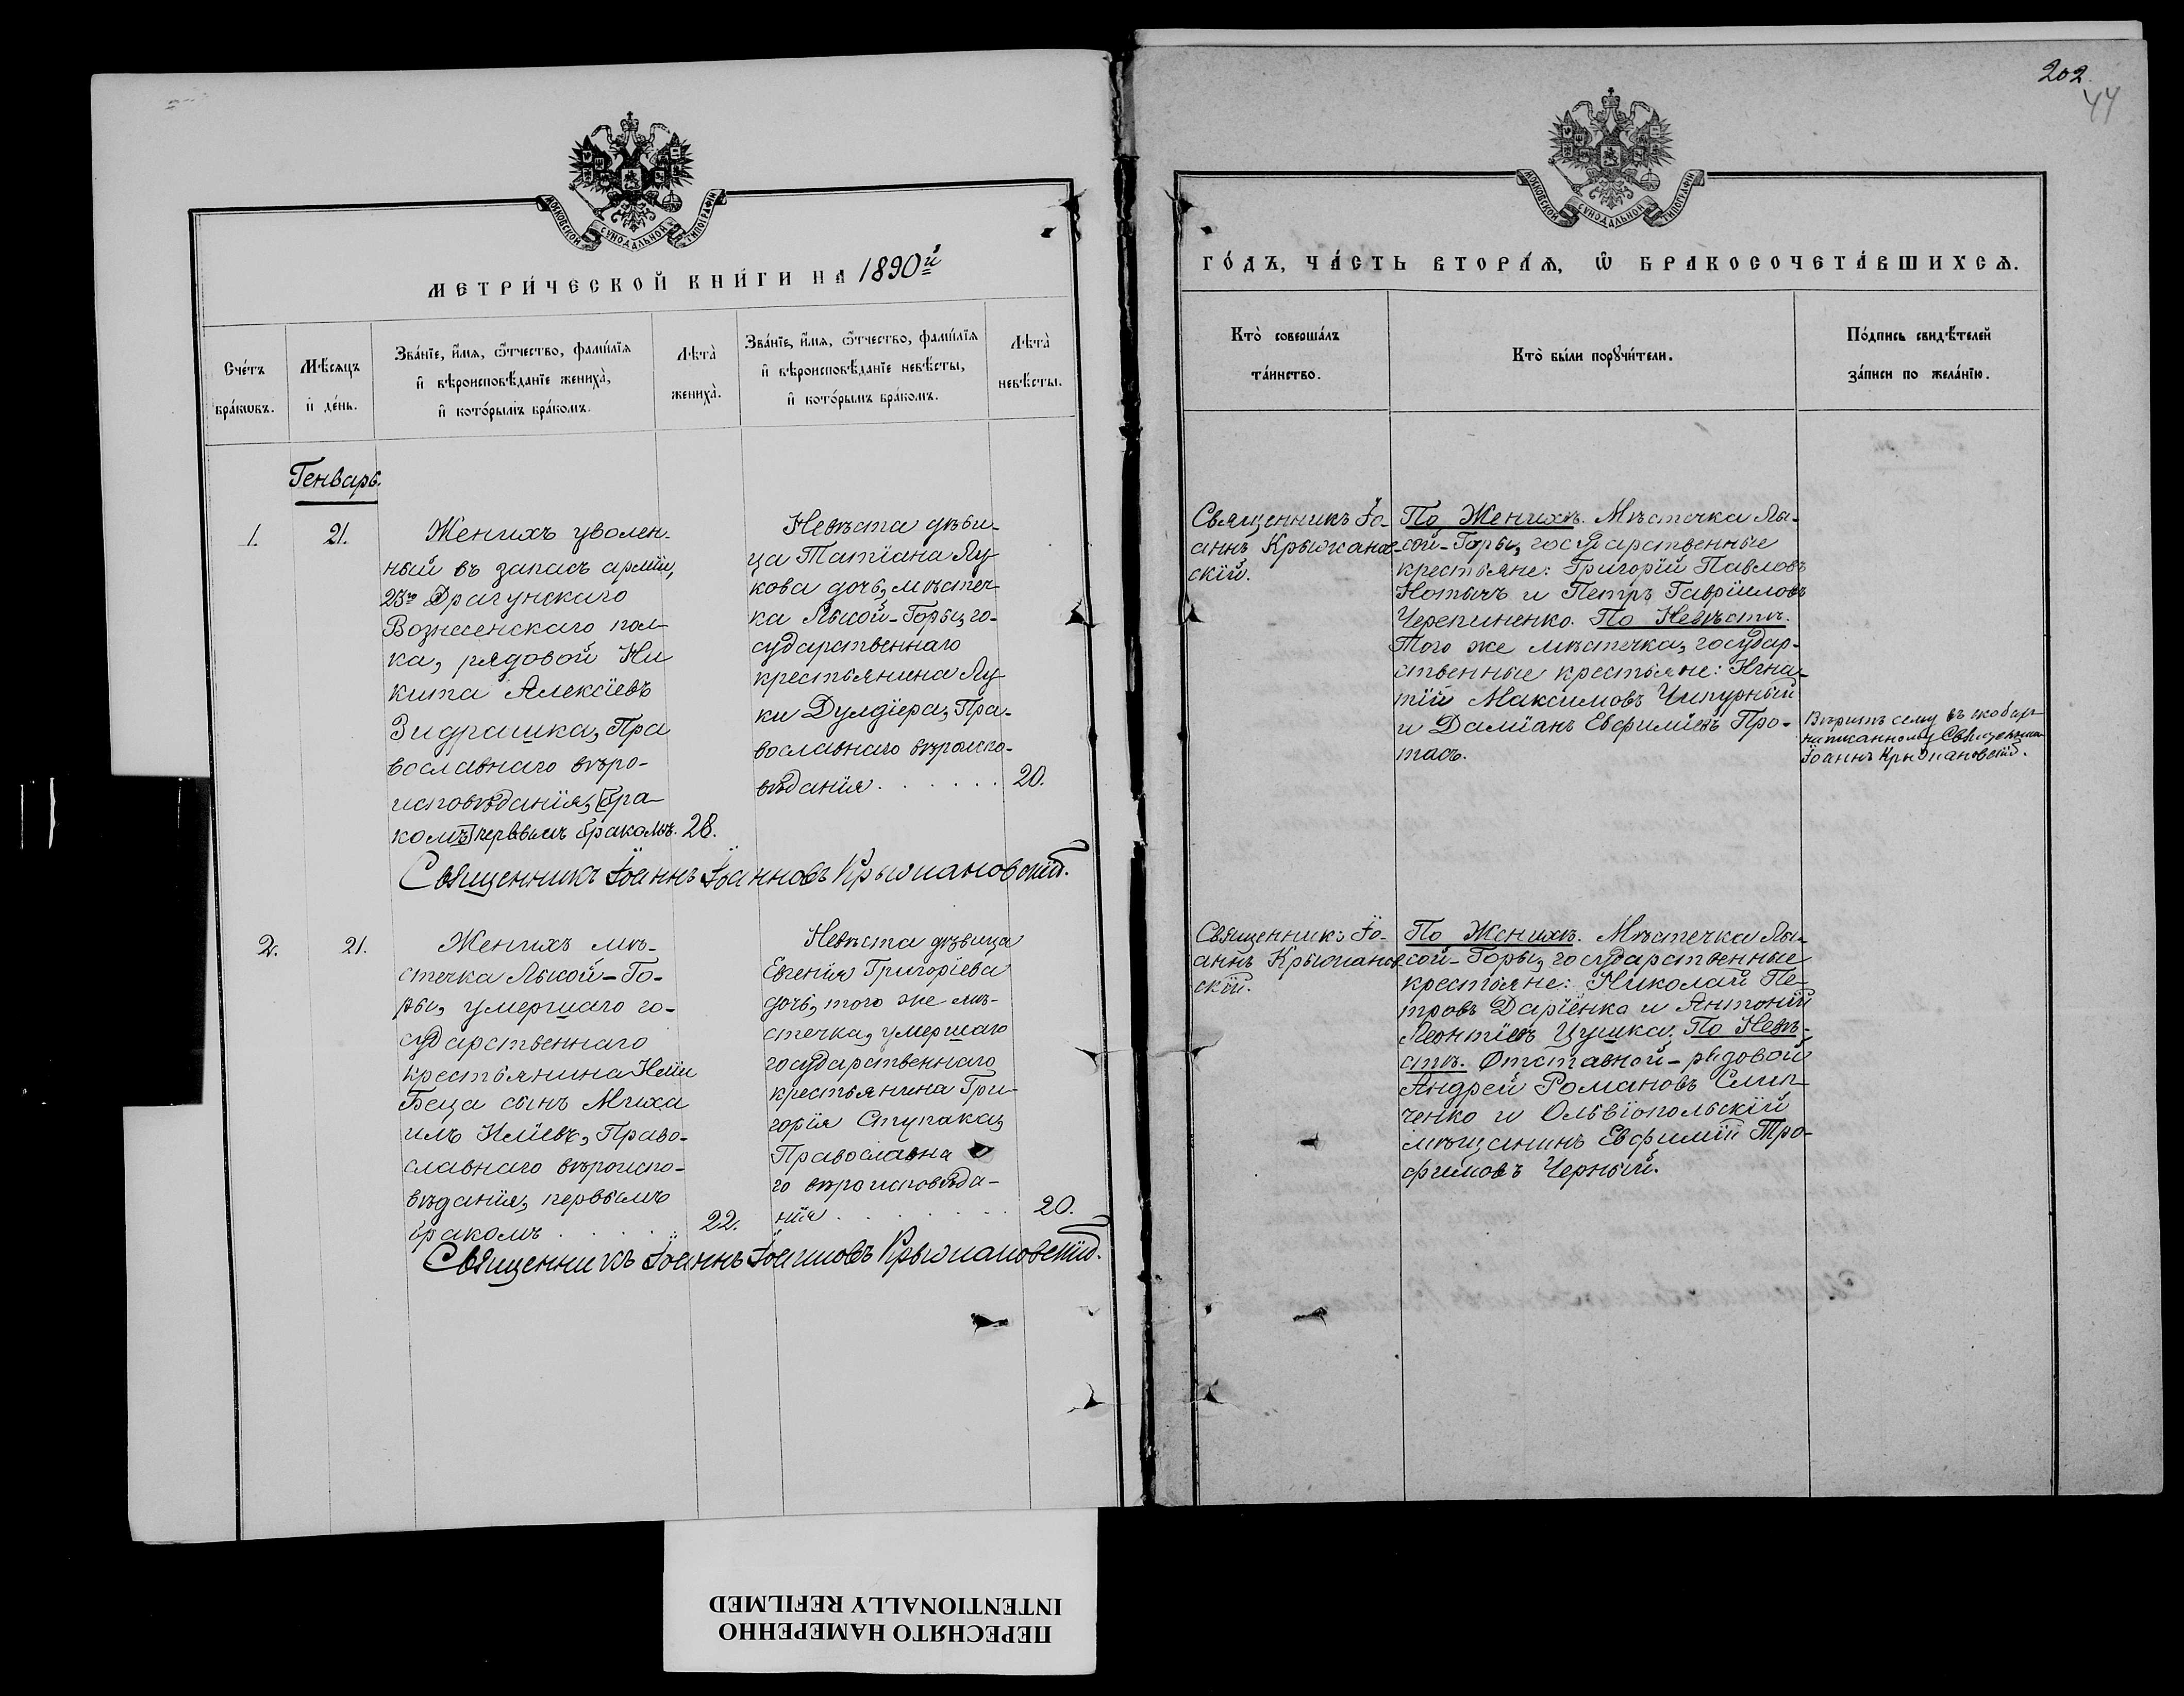 202.
44
МОСКОВСКОЙ СѴНОДАЛЬНОЙ ТИПОГРАФІИ
МЕТРИ́ЧЕСКОЙ КНИ́ГИ НА 1890й
Сче́тъ бра́кѡвъ.
Мѣ́сяцъ и҆ де́нь.
Зва́нїе, и҆́мѧ, ѻ҆́тчество, фамѝлїѧ
и҆ вѣроисповѣ́данїе женихà,
и҆ кото́рымъ бра́комъ.
Лѣтà женихà.
Зва́нїе, и҆́мѧ, ѻ҆́тчество, фамѝлїѧ
и҆ вѣроисповѣ́данїе невѣ́сты,
и҆ кото́рымъ бра́комъ.
Лѣтà невѣ́сты.
Генварь.
1.
21.
Женихъ уволен-
ный въ запасъ арміи,
23го Драгунскаго
Вознесенскаго пол-
ка, рядовой Ни
кита Алексіевъ
Зидрашка, Пра
вославнаго вѣро-
исповѣданія, [бра-
комъ] первымъ бракомъ. 28.
Невѣста дѣви-
ца Татіана Лу
кова дочь, мѣстеч-
ка Лысой-Горы, го-
сударственнаго
крестьянина Лу-
ки Дулдіера, Пра-
вославнаго вѣроиспо-
вѣданія . . . . . . . 20.
Священникъ Іоаннъ Іоанновъ Крыжановскій.
2.
21.
Женихъ мѣ-
стечка Лысой-Го-
ры, умершаго го-
сударственнаго
крестьянина Иліи
Беца сынъ Миха
илъ Иліевъ, Право-
славнаго вѣроиспо-
вѣданія, первымъ
бракомъ . . . . . 22.
Невѣста дѣвица
Евгенія Григоріева
дочь, того же мѣ-
стечка, умершаго
государственнаго
крестьянина Гри-
горія Ступака,
Православна
го вѣроисповѣда-
нія . . . . . . . 20.
Священникъ Іоаннъ Іоанновъ Крыжановскій.
МОСКОВСКОЙ СѴНОДАЛЬНОЙ ТИПОГРАФІИ
ГО́ДЪ, ЧА́СТЬ ВТОРА́Ѧ, Ѡ҆ БРАКОСОЧЕТА́ВШИХСѦ.
Кто̀ соверша́лъ
та́инство.
Кто̀ бы́ли порꙋчи́тели.
По́дпись свидѣ́телей
за́писи по жела́нїю.
Священникъ Іо-
аннъ Крыжанов-
скій.
По Женихѣ. Мѣстечка Лы-
сой-Горы, государственные
крестьяне: Григорій Павловъ
Нотычъ и Петръ Гавріиловъ
Черепиненко. По Невѣстѣ.
Того же мѣстечка, государ-
ственные крестьяне: Игна-
тій Максимовъ Чипурный
и Даміанъ Евфиміевъ Про-
тасъ.
Вѣрить сему въ скобахъ
написанному Священникъ
Іоаннъ Крыжановскій.
Священникъ Іо-
аннъ Крыжанов-
скій.
По Женихѣ. Мѣстечка Лы-
сой-Горы, государственные
крестьяне: Николай Пе-
тровъ Даріенко и Антоній
Леонтіевъ Цушка. По Невѣ-
стѣ. Отставной-рядовой
Андрей Романовъ Слип-
ченко и Ольвіопольскій
мѣщанинъ Евфимій Тро-
фимовъ Черный.
ПЕРЕСНЯТО НАМЕРЕННО
INTENTIONALLY REFILMED